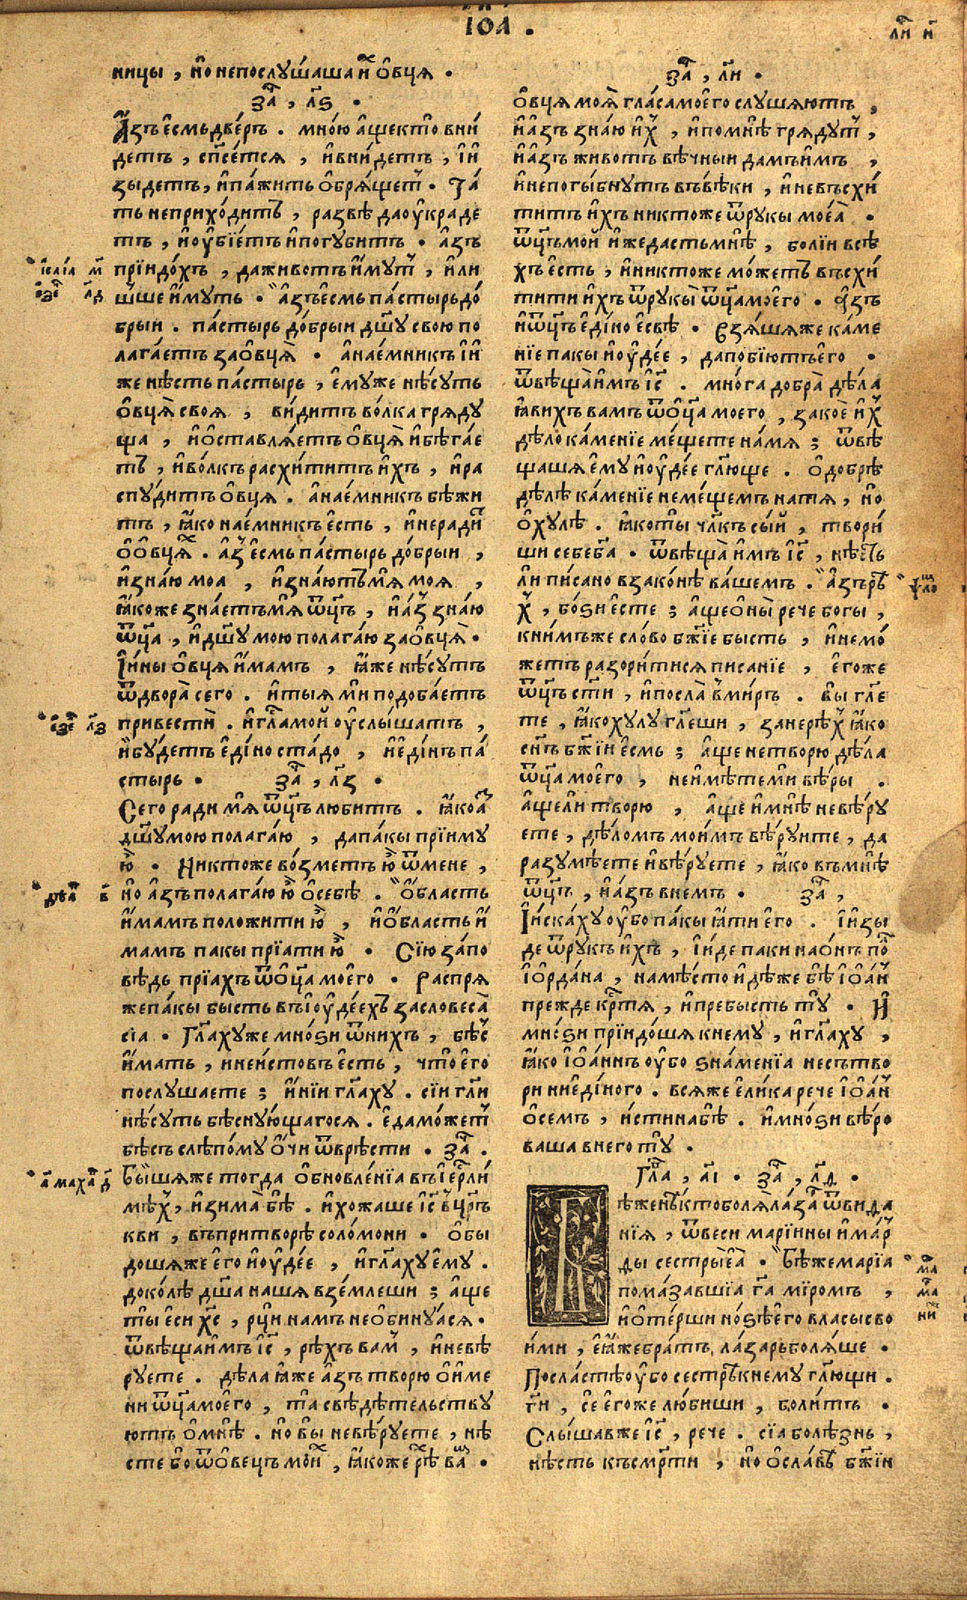 ІѠА .
ницы , но непослꙋшаша и҆́х ѻ҆вцѧ .
за҄ , л҃ѕ .
А҆́зъ є҆смь две́рь . мно́ю а҆́ще кто̀ вни́
детъ , сп҃се́тсѧ , и҆ вни́детъ , і҆ и҆
зы́детъ , и҆ па́жить ѻ҆брѧ́щет . Та́
ть неприхо́дитъ , развѣ̀ да ѹ҆краде
тъ , и҆ ѹ҆бїе́тъ и҆ погꙋби́тъ . а҆́зъ
прїидо́хъ , да живо́тъ и҆́мꙋт , и҆ ли
шше и҆́мꙋть . а҆́зъ є҆смь па́стырь до́
брыи . па́стырь до́брыи дш҃ꙋ свою̀ по
лага́етъ за ѻ҆вцѧ̀ . а҆ нае́мникъ і҆ и҆
же нѣ́сть па́стырь , є҆мꙋже нѣ́сꙋть
ѻ҆вцѧ̀ своѧ̀ , ви́дитъ во́лка грѧдꙋ
ща , и҆ ѻ҆ставлѧ́етъ ѻ҆вцѧ̀ и҆ бѣ́гае
тъ , и҆ во́лкъ расхи́титъ и҆́хъ , и҆ ра
спꙋ́дитъ ѻ҆вцѧ . а҆ нае́мникъ бѣжи
тъ , ꙗ҆́ко нае́мникъ є҆сть , и҆ неради́т
ѻ҆ ѻ҆вцѧ́х . а҆́з є҆смь па́стырь до́брыи ,
и҆ зна́ю моѧ , и҆ зна́ютъ мѧ̀ моѧ ,
ꙗ҆́коже зна́етъ мѧ̀ ѿц҃ъ , и҆ а҆́з зна́ю
ѿц҃а , и҆ дш҃ꙋ мою̀ полага́ю за ѻ҆вцѧ̀ .
І҆ и҆́ны ѻ҆вцѧ и҆́мамъ , ꙗ҆́же нѣ́сꙋтъ
ѿ двора̀ сего . и҆ ты́ѧ ми подоба́етъ
привестѝ . и҆ гла҃са мой ѹ҆слы́шатъ ,
и҆ бꙋ́детъ є҆ди́но ста́до , и҆ є҆ди́нъ па́
стырь . за҄ , л҃з .
Сего ради мѧ̀ ѿц҃ъ лю́битъ . ꙗ҆́ко а҆́з
дш҃ꙋ мою̀ полага́ю , да па́кы прїимꙋ
ю҆̀ . Никто́же во́зметъ ю҆̀ ѿ мене ,
но а҆́зъ полага́ю ю҆̀ ѻ҆ себѣ̀ . ѻ҆́бласть
и҆́мамъ положи́ти ю҆̀ , и҆ ѻ҆́бласть и҆́
мамъ пакы прїа́ти ю҆̀ . Сїю̀ за́по
вѣдь прїа́хъ ѿ ѻ҆ц҃а моего . Распрѧ
же па́кы бысть въ і҆ꙋде́ехъ за словеса̀
сїа̀ . Гл҃ахꙋже мно́ѕи ѿ ни́хъ , бѣ́с
и҆́мать , и҆ неи́стовъ є҆́сть , что̀ є҆го
послꙋ́шаете ; и҆́нїи гл҃ахꙋ . сїи гл҃и
нѣ́сꙋть бѣснꙋ́ющагосѧ . є҆да мо́жет
бѣ́съ слѣпо́мꙋ ѻ҆́чи ѿврѣ́сти . за҄ .
Бы́шѧже тогда ѻ҆бновле́нїа въ і҆ер҃ли
мѣ́х , и҆ зима̀ бѣ̀ . и҆ хожаше і҆с҃ в цр҃ъ
кви , въ притво́рѣ соло́мони . ѻ҆бы
до́шѧже є҆го̀ і҆ꙋде́е , и҆ гл҃ахꙋ є҆мꙋ .
доко́лѣ дш҃а на́шѧ взе́млеши ; а҆́ще
ты̀ є҆сѝ х҃с , рци на́мъ не ѻ҆бинꙋ́ѧсѧ .
ѿвѣща̀ и҆́мъ і҆с҃ , рѣ́хъ ва́м , и҆ невѣ́
рꙋете . дѣла ꙗ҆́же а҆́зъ творю̀ ѻ҆ и҆ме
ни ѿц҃а моего , та̀ свѣдѣ́тельствꙋ
ютъ ѻ҆ мнѣ̀ . но вы̀ невѣ́рꙋете , нѣ́
сте бо ѿ ѻ҆ве́цъ мои́х , ꙗ҆́коже рѣ́х ва́м .
за҄ , л҃и .
ѻ҆вцѧ моѧ̀ гла́са моего слꙋ́шѧютъ ,
и҆ а҆́зъ зна́ю и҆́х , и҆ по мнѣ̀ грѧдꙋ́т ,
и҆ а҆́зъ живо́тъ вѣ́чныи да́мъ и҆́мъ ,
и҆ непогы́бнꙋтъ въ вѣ́ки , и҆ невъсхи́
титъ и҆́хъ никто́же ѿ рꙋкы моеѧ̀ .
ѿц҃ъ мой и҆́же да́сть мнѣ̀ , бо́лїи всѣ́
хъ є҆́сть , и҆ никто́же мо́жетъ въсхи́
тити и҆́хъ ѿ рꙋкы̀ ѿц҃а моего . а҆́зъ
и҆ ѿц҃ъ є҆ди́но є҆свѣ̀ . Взѧ́шѧже ка́ме
нїе пакы і҆ꙋде́е , да побїю́тъ є҆го .
ѿвѣща̀ и҆́мъ і҆с҃ . мно́га добра̀ дѣ́ла
ꙗ҆ви́хъ ва́мъ ѿ ѻ҆ц҃а моего , за кое и҆́х
дѣ́ло ка́менїе ме́щете на мѧ̀ ; ѿвѣ
щашѧ є҆мꙋ̀ і҆ꙋде́е гл҃юще . ѻ҆ добрѣ̀
дѣ́лѣ ка́менїе неме́щемъ на тѧ̀ , но
ѻ҆ хꙋлѣ̀ . ꙗ҆́ко ты̀ чл҃къ сы́й , твори́
ши себе б҃а . ѿвѣща̀ и҆́мъ і҆с҃ , нѣ́сть
ли пи́сано в зако́нѣ ва́шемъ . а҆́зъ рѣ́
х , бо́ѕи є҆сте ; а҆́ще ѻ҆ны̀ рече бо́гы ,
к ни́мъже сло́во бж҃їе бысть , и҆ немо́
жетъ разори́тисѧ писа́нїе , є҆го́же
ѿц҃ъ ст҃и , и҆ посла̀ в ми́ръ . вы гл҃е
те , ꙗ҆́ко хꙋлꙋ̀ гл҃еши , зане рѣ́х ꙗ҆́ко
сн҃ъ бж҃їи є҆́смь ; а҆́ще нетворю̀ дѣ́ла
ѿц҃а моего , неими́те мѝ вѣ́ры .
а҆́щели творю , а҆́ще и҆ мнѣ̀ невѣ́рꙋ
ете , дѣло́мъ мои́мъ вѣ́рꙋите , да
разꙋмѣ́ете и҆ вѣ́рꙋете , ꙗ҆́ко въ мнѣ̀
ѿц҃ъ , и҆ а҆́зъ в не́мъ . за҄ ,
І҆ иска́хꙋ ѹ҆́бо па́кы ꙗ҆́ти є҆го . і҆ и҆зы
де ѿ рꙋ́къ и҆́хъ , і҆ и҆́де паки на ѻ҆́нъ по́л
і҆ѻ҆рда́на , на мѣ́сто и҆дѣ́же бѣ̀ і҆ѻ҆а́н
пре́жде кр҃тѧ , и҆ пребы́сть тꙋ̀ . И҆
мно́ѕи прїидо́шѧ к немꙋ , и҆ гл҃ахꙋ ,
ꙗ҆́ко і҆ѻ҆а́ннъ ѹ҆́бо ѕна́менїа несътво
ри ниеди́ного . всѧ́же є҆ли́ка рече і҆ѻ҆а́н
ѻ҆ се́мъ , и҆́стина бѣ̀ . и҆ мно́ѕи вѣ́ро
ваша в него тꙋ̀ .
Гла҃ , а҃і . за҄ , л҃д .
Бѣ́же нѣ́кто болѧ̀ ла́зар ѿ вида
нїѧ , ѿ ве́си марїины и҆ ма́р
ды сестры̀ є҆ѧ̀ . Бѣ́же марїа
пома́завшїа г҃а мѵ́ромъ ,
и҆ ѻ҆те́рши но́ѕѣ є҆го власы̀ сво
и́ми , є҆ѧ́же бра́тъ ла́зарь болѧ́ше .
Посла́стѣ ѹ҆́бо сестрѣ̀ к немꙋ гл҃ющи .
г҃и , се є҆го́же лю́биши , боли́тъ .
Слы́шавже і҆с҃ , рече . сїа болѣ́знь ,
нѣ́сть къ сме́рти , но ѻ҆ сла́вѣ бж҃їи